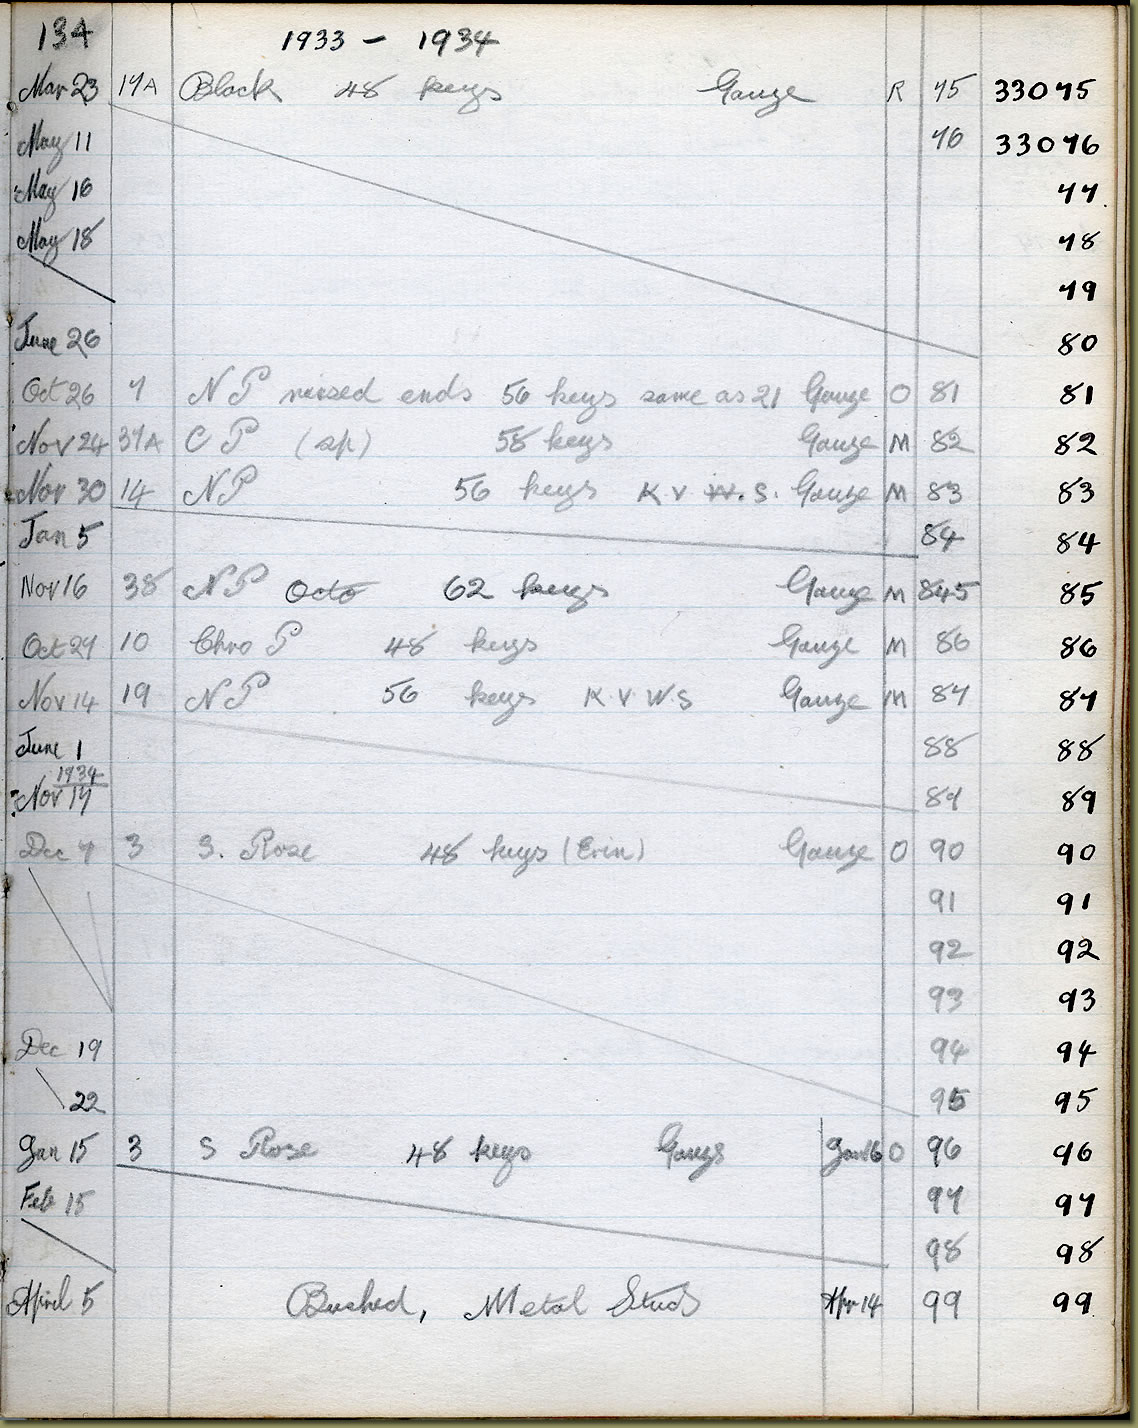 134 1933 - 1934
Mar 23 17A Black 48 keys Gauze R 75 33075
May 11 76 33076
May 16 77
May 18 78
79
June 26 80
Oct 26 7 NP raised ends 56 keys same as 21 Gauze O 81 81
Nov 24 37A CP (sp) 58 keys Gauze M 82 82
Nov 30 14 NP 56 keys K V W.S. Gauze M 83 83
Jan 5 84 84
Nov 16 38 NP Octo 62 keys Gauze M 845 85
Oct 27 10 Chro P 48 keys Gauze M 86 86
Nov 14 19 NP 56 keys K V W S Gauze M 87 87
June 1 88 88
1934
Nov 17 89 89
Dec 7 3 S. Rose 48 keys (Erin) Gauze O 90 90
91 91
92 92
93 93
Dec 19 94 94
22 95 95
Jan 15 3 S Rose 48 keys Gauze Jan 16 O 96 96
Feb 15 97 97
98 98
April 5 Bushed, Metal Studs Apr 14 99 99